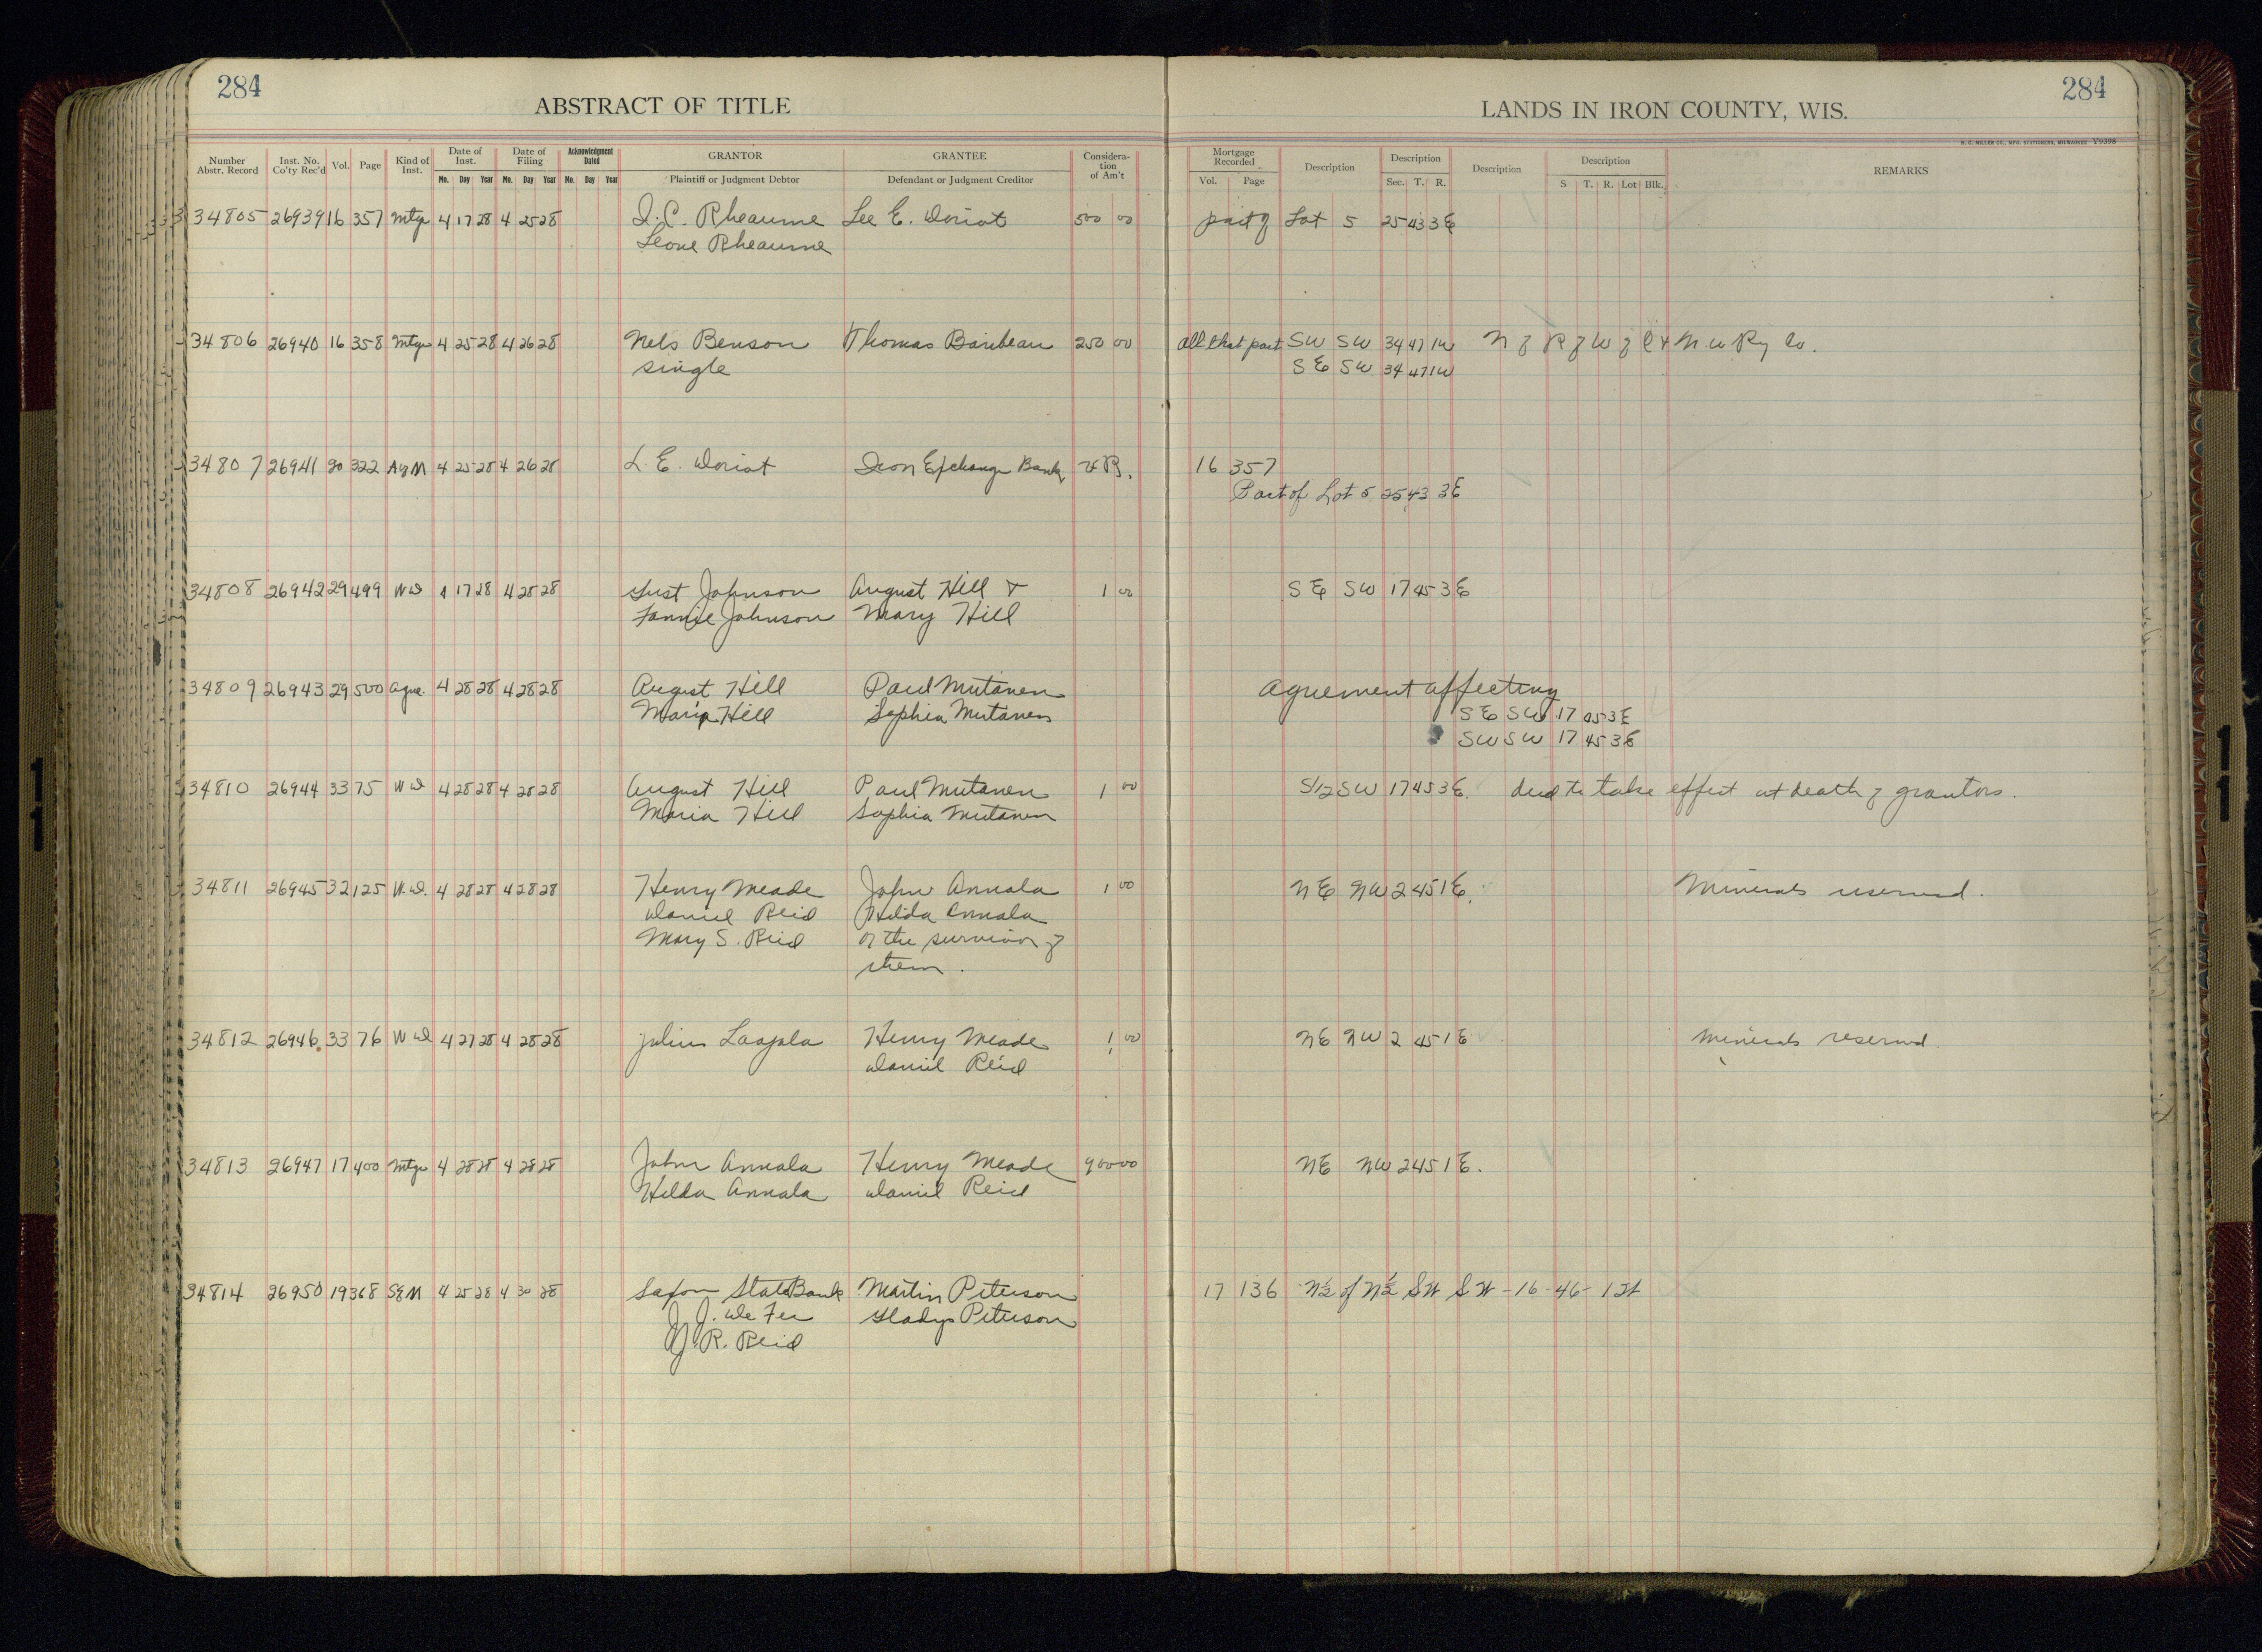 284
ABSTRACT OF TITLE
LANDS IN IRON COUNTY, WIS.
284
H. C. MILLER CO., MFG. STATIONERS, MILWAUKEE Y9398
Number Abstr. Record Inst. No. Co'ty Rec'd Vol. Page Kind of Inst. Date of Inst. Mo. Day Year Date of Filing Mo. Day Year Acknowledgment Dated Mo. Day Year GRANTOR Plaintiff or Judgment Debtor GRANTEE Defendant or Judgment Creditor Considera-tion of Am't Mortgage Recorded Vol. Page Description Description Sec. T. R. Description Description S T. R. Lot Blk. REMARKS
34805 26939 16 357 Mtge 4 17 28 4 25 28 I. C. Rheaume Lee E. Doriot 500 00 part of Lot 5 25 43 3E
Leone Rheaume
34806 26940 16 358 Mtge 4 25 28 4 26 28 Nels Benson Thomas Baribeau 250 00 all that part SW SW 34 47 1W N of R of W of C + N. W Ry Co.
single SE SW 34 47 1W
34807 26941 20 322 AgM 4 25 28 4 26 28 L. E. Doriot Iron Exchange Bank VR. 16 357
Part of Lot 5 25 43 3E
34808 26942 29 499 WD 4 17 28 4 28 28 Gust Johnson August Hill + 1 00 SE SW 17 45 3E
Fannie Johnson Mary Hill
34809 26943 29 500 Agre. 4 28 28 4 28 28 August Hill Paul Mutanen Agreement affecting
Maria Hill Sophia Mutanen SE SW 17 45 3E
SW SW 17 45 3E
34810 26944 33 75 WD 4 28 28 4 28 28 August Hill Paul Mutanen 1 00 S1/2 SW 17 45 3E. deed to take effect at death of grantors.
Maria Hill Sophia Mutanen
34811 26945 32 125 W.D. 4 28 28 4 28 28 Henry Meade John Annala 1 00 NE NW 2 45 1E. Minerals reserved.
Daniel Reid Hilda Annala
Mary S. Reid or the survivor of
them.
34812 26946 33 76 WD 4 27 28 4 28 28 Julius Laajala Henry Meade 1 00 NE NW 2 45 1E Minerals reserved
Daniel Reid
34813 26947 17 400 Mtge 4 28 28 4 28 28 John Annala Henry Meade 900 00 NE NW 2 45 1E.
Hilda Annala Daniel Reid
34814 26950 19 368 SEM 4 25 28 4 30 28 Saxon State Bank Martin Peterson 17 136 N½ of N½ SW SW - 16 - 46 - 1W
J. J. De Fer Gladys Peterson
R. Reid